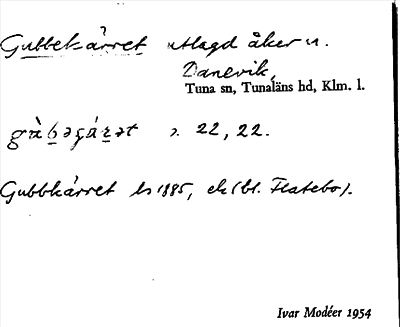 Gubbekärret utlagd åker n.
Danevik,
Tuna sn, Tunaläns hd, Klm. l.
22, 22.
Gubbkärret ls 1885, ek (bl. Flatebo).
Ivar Modéer 1954